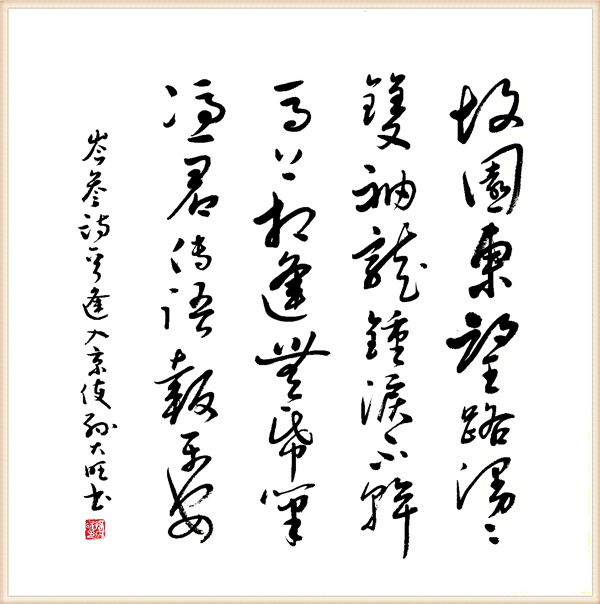 故園東望路漫漫
雙袖龍鍾淚不乾
馬上相逢無帋筆
憑君傳語報平安
岑參詩一首逢入京使孫大旺書